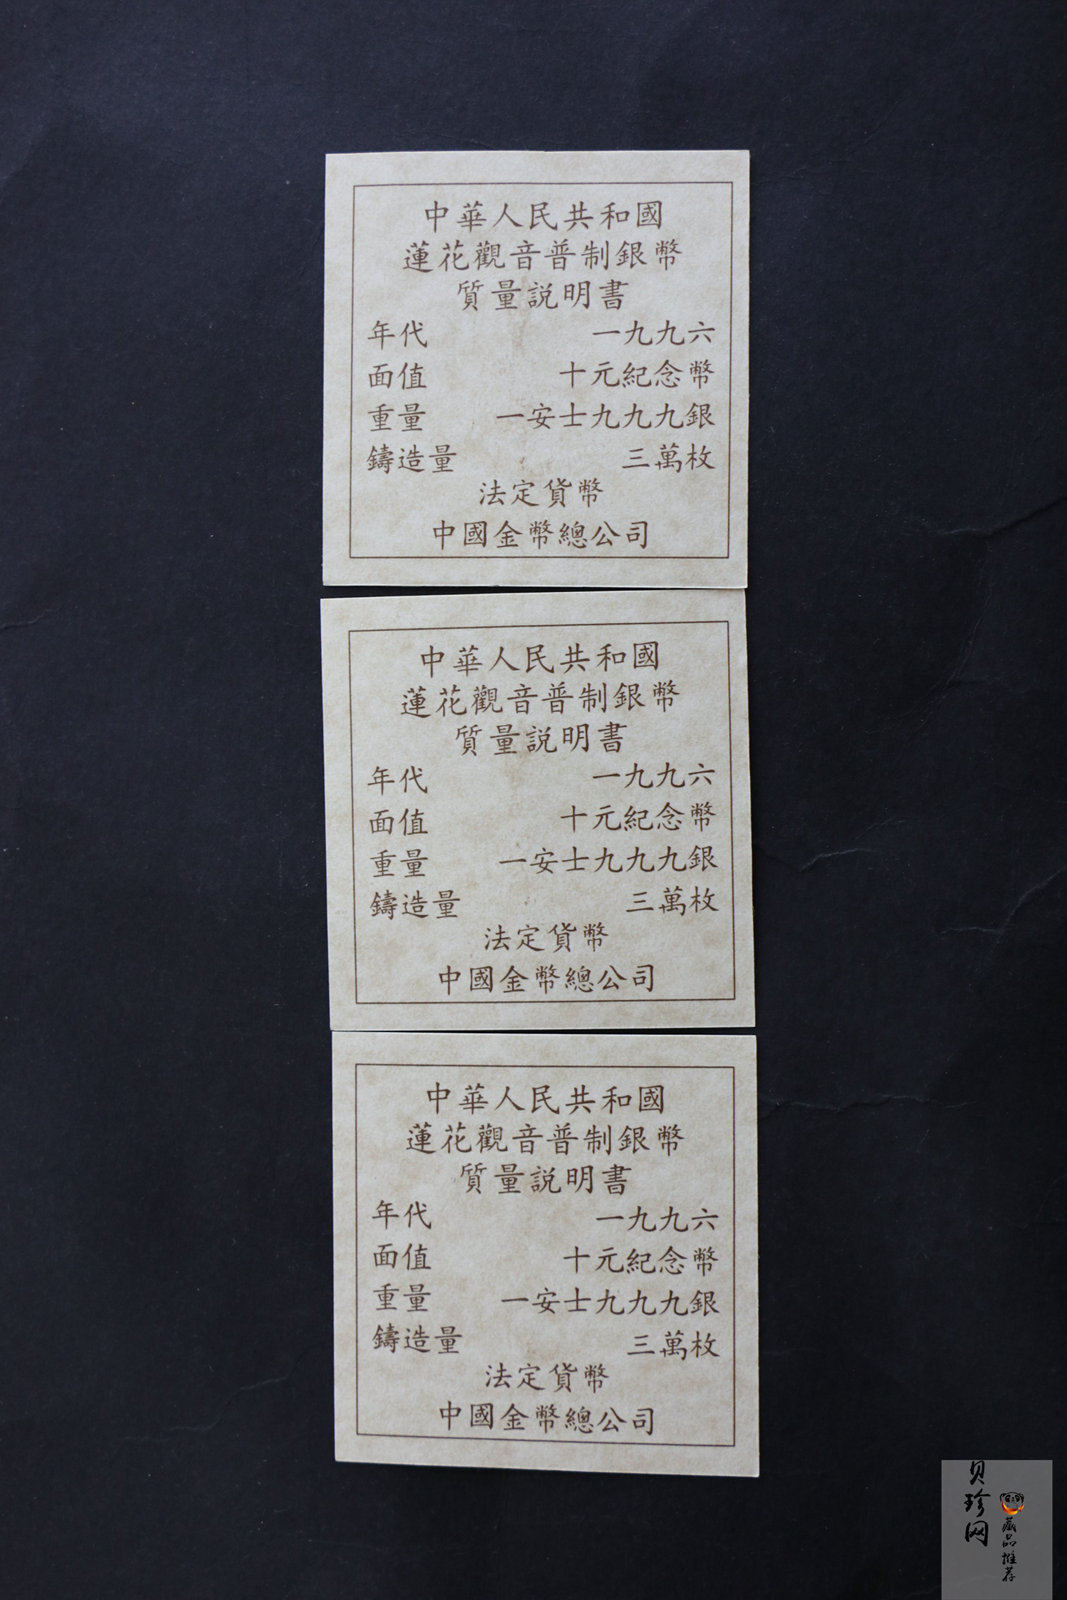 中華人民共和國
蓮花觀音普制銀幣
質量説明書
年代 一九九六
面值 十元紀念幣
重量 一安士九九九銀
鑄造量 三萬枚
法定貨幣
中國金幣總公司
中華人民共和國
蓮花觀音普制銀幣
質量説明書
年代 一九九六
面值 十元紀念幣
重量 一安士九九九銀
鑄造量 三萬枚
法定貨幣
中國金幣總公司
中華人民共和國
蓮花觀音普制銀幣
質量説明書
年代 一九九六
面值 十元紀念幣
重量 一安士九九九銀
鑄造量 三萬枚
法定貨幣
中國金幣總公司
贝珍网
藏品推荐